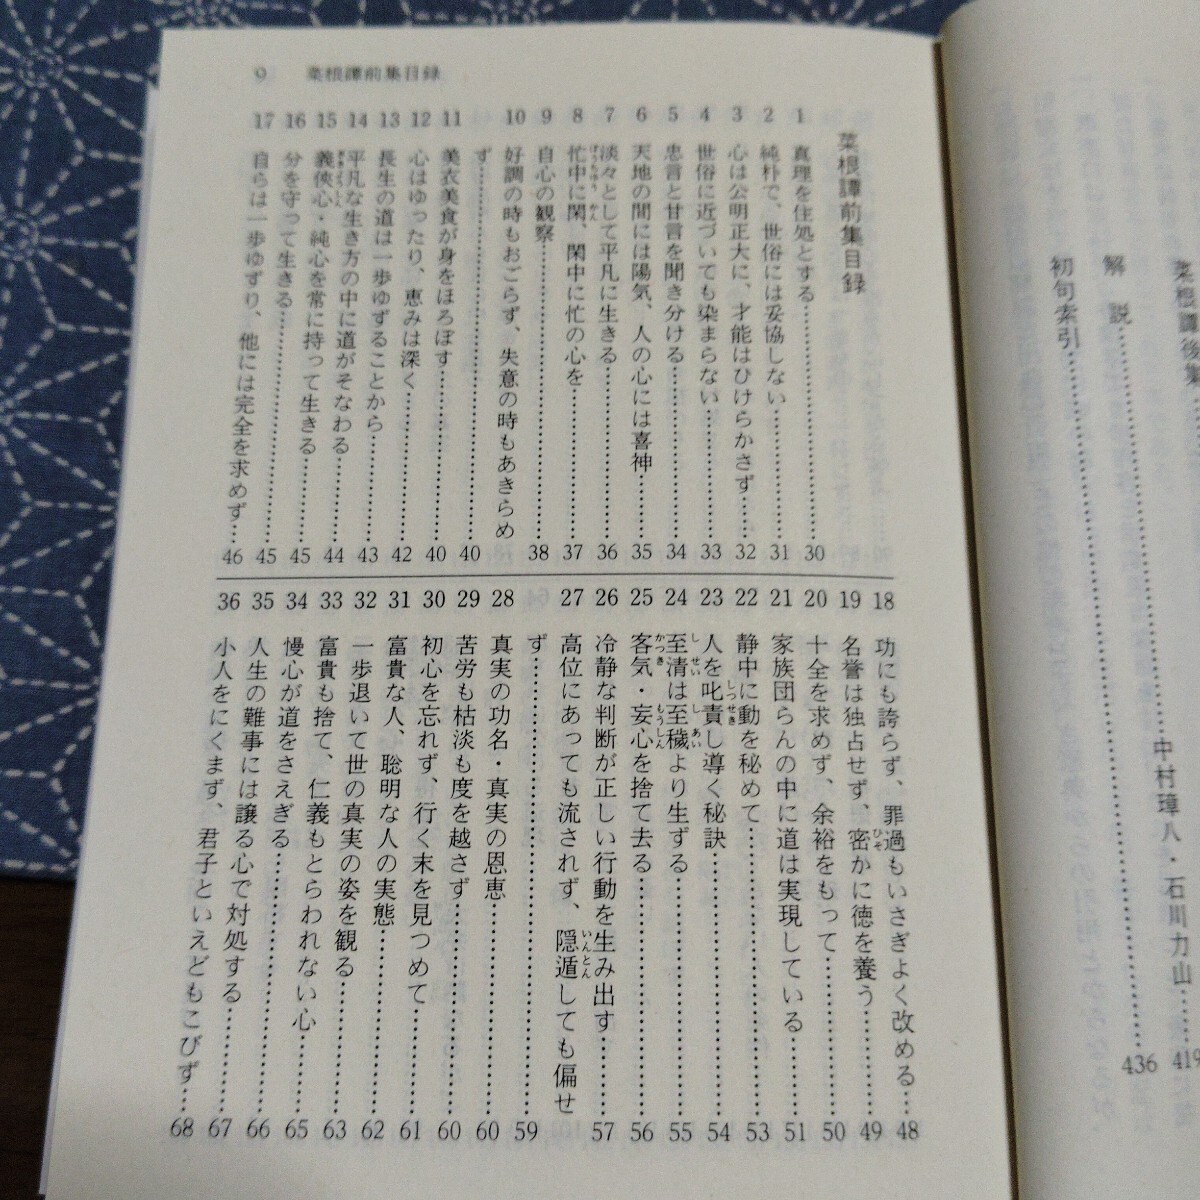 菜根譚後集
解説
中村璋八・石川力山 419
436
初句索引
9 菜根譚前集目録
菜根譚前集目録
1 真理を住処とする 30
2 純朴で、世俗には妥協しない 31
3 心は公明正大に、才能はひけらかさず 32
4 世俗に近づいても染まらない 33
5 忠言と甘言を聞き分ける 34
6 天地の間には陽気、人の心には喜神 35
7 淡々として平凡に生きる 36
8 忙中に閑、閑中に忙の心を 37
9 自心の観察 38
10 好調の時もおごらず、失意の時もあきらめ
ず 40
11 美衣美食が身をほろぼす 40
12 心はゆったり、恵みは深く 42
13 長生の道は一歩ゆずることから 43
14 平凡な生き方の中に道がそなわる 44
15 義俠心・純心を常に持って生きる 45
16 分を守って生きる 45
17 自らは一歩ゆずり、他には完全を求めず 46
18 功にも誇らず、罪過もいさぎよく改める 48
19 名誉は独占せず、密かに徳を養う 49
20 十全を求めず、余裕をもって 50
21 家族団らんの中に道は実現している 51
22 静中に動を秘めて 53
23 人を叱責し導く秘訣 54
24 至清は至穢より生ずる 55
25 客気・妄心を捨て去る 56
26 冷静な判断が正しい行動を生み出す 57
27 高位にあっても流されず、隠遁しても偏せ
ず 59
28 真実の功名・真実の恩恵 60
29 苦労も枯淡も度を越さず 60
30 初心を忘れず、行く末を見つめて 61
31 富貴な人、聡明な人の実態 62
32 一歩退いて世の真実の姿を観る 63
33 富貴も捨て、仁義もとらわれない心 65
34 慢心が道をさえぎる 66
35 人生の難事には譲る心で対処する 67
36 小人をにくまず、君子といえどもこびず 68